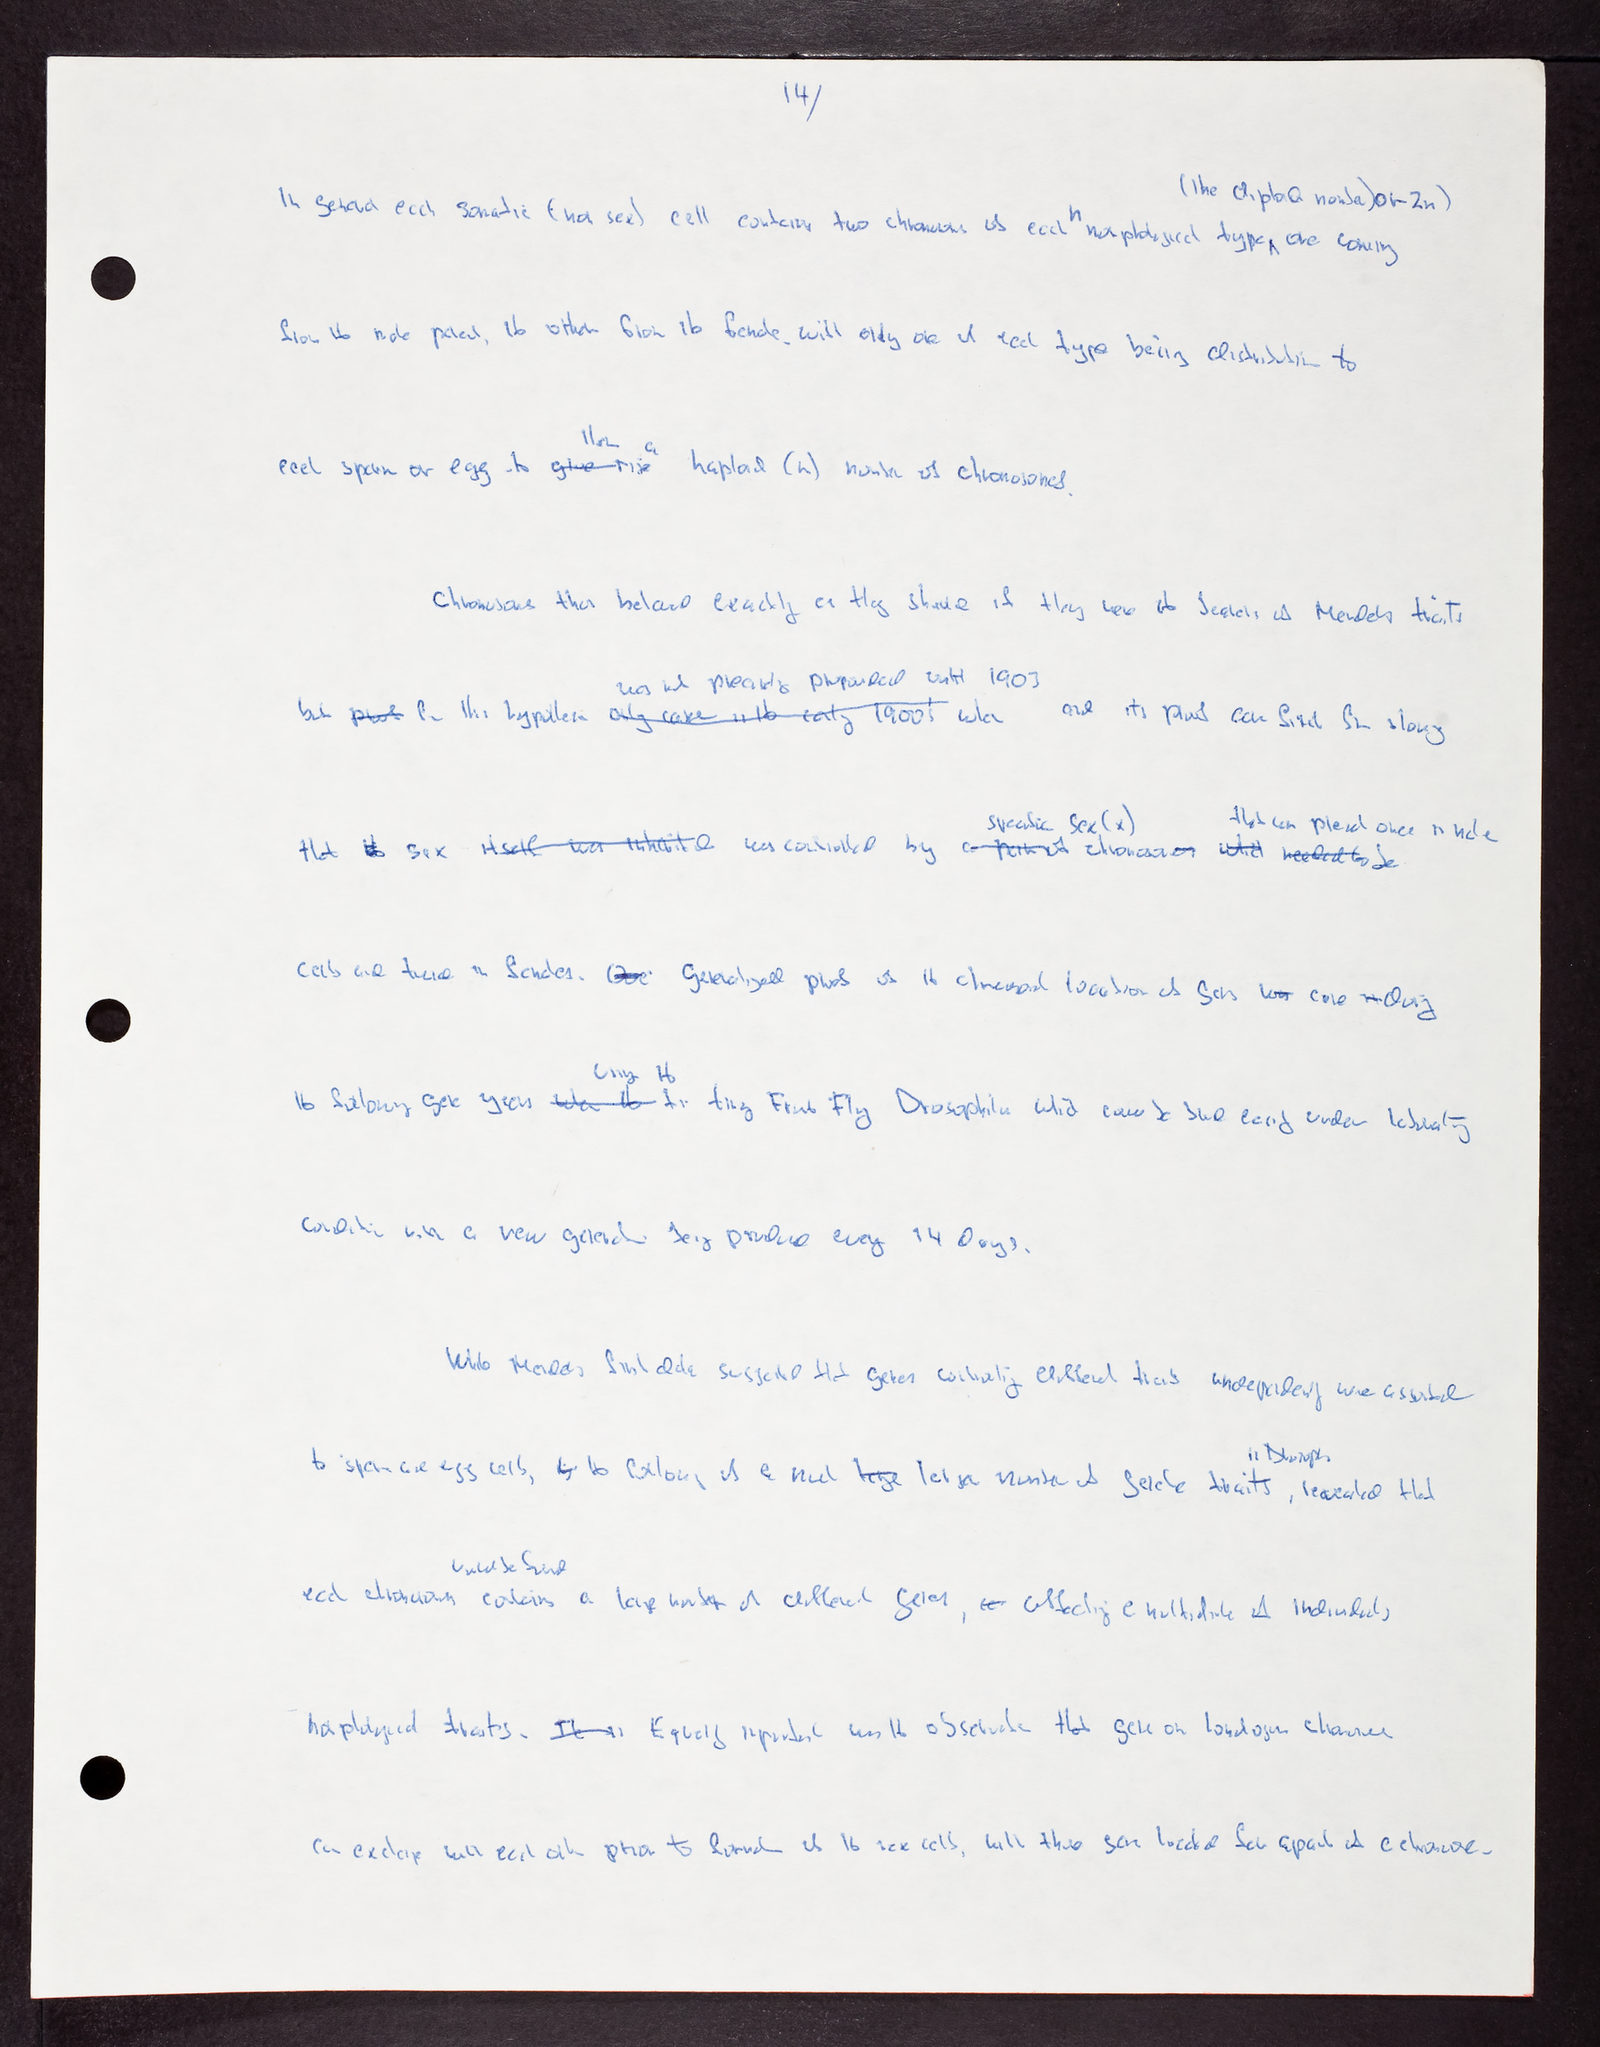 14/
(the diploid number) or 2n)
In general each somatic (non sex) cell contains two chromosomes of each n morphological type, one coming
from the male parent, the other from the female. with only one of each type being distributed to
then a
each sperm or egg to give rise haploid (n) number of chromosomes.
Chromosomes thus behave exactly as they should if they were the bearers of Mendel's traits
was not precisely propounded until 1903
but proof for this hypothesis only came in the early 1900's when and its proof came first from
specific sex (x) that were present once in male
that the sex itself was inherited was controlled by a pair of chromosomes which needed to be
cells and twice in females. Generalized proof of the chromosomal location of genes was came during
using the
the following years when the tiny Fruit Fly Drosophila which could be bred easily under laboratory
conditions with a new generation being produced every 14 days.
While Mendel's first data suggested that genes controlling different traits independently were assorted
in Drosophila
to sperm and egg cells, by the following of a much large larger number of genetic traits, revealed that
could be found
each chromosome contains a large number of different genes, affecting a multitude of
morphological traits. It is Equally important was the observation that genes on homologous chromosomes
can exchange with each other prior to formation of the sex cells, with those genes located far apart at a chromosome